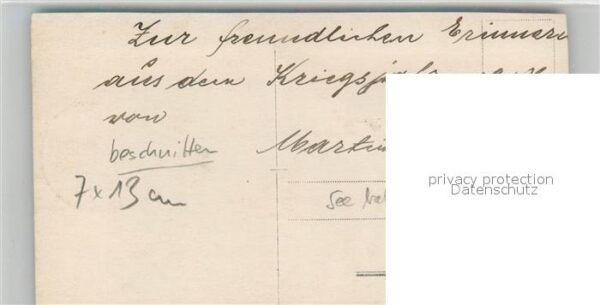 Zur freundlichen Erinner
aus dem Kriegsja
von
beschnitten Martin
7 x 13 cm
See
privacy protection
Datenschutz